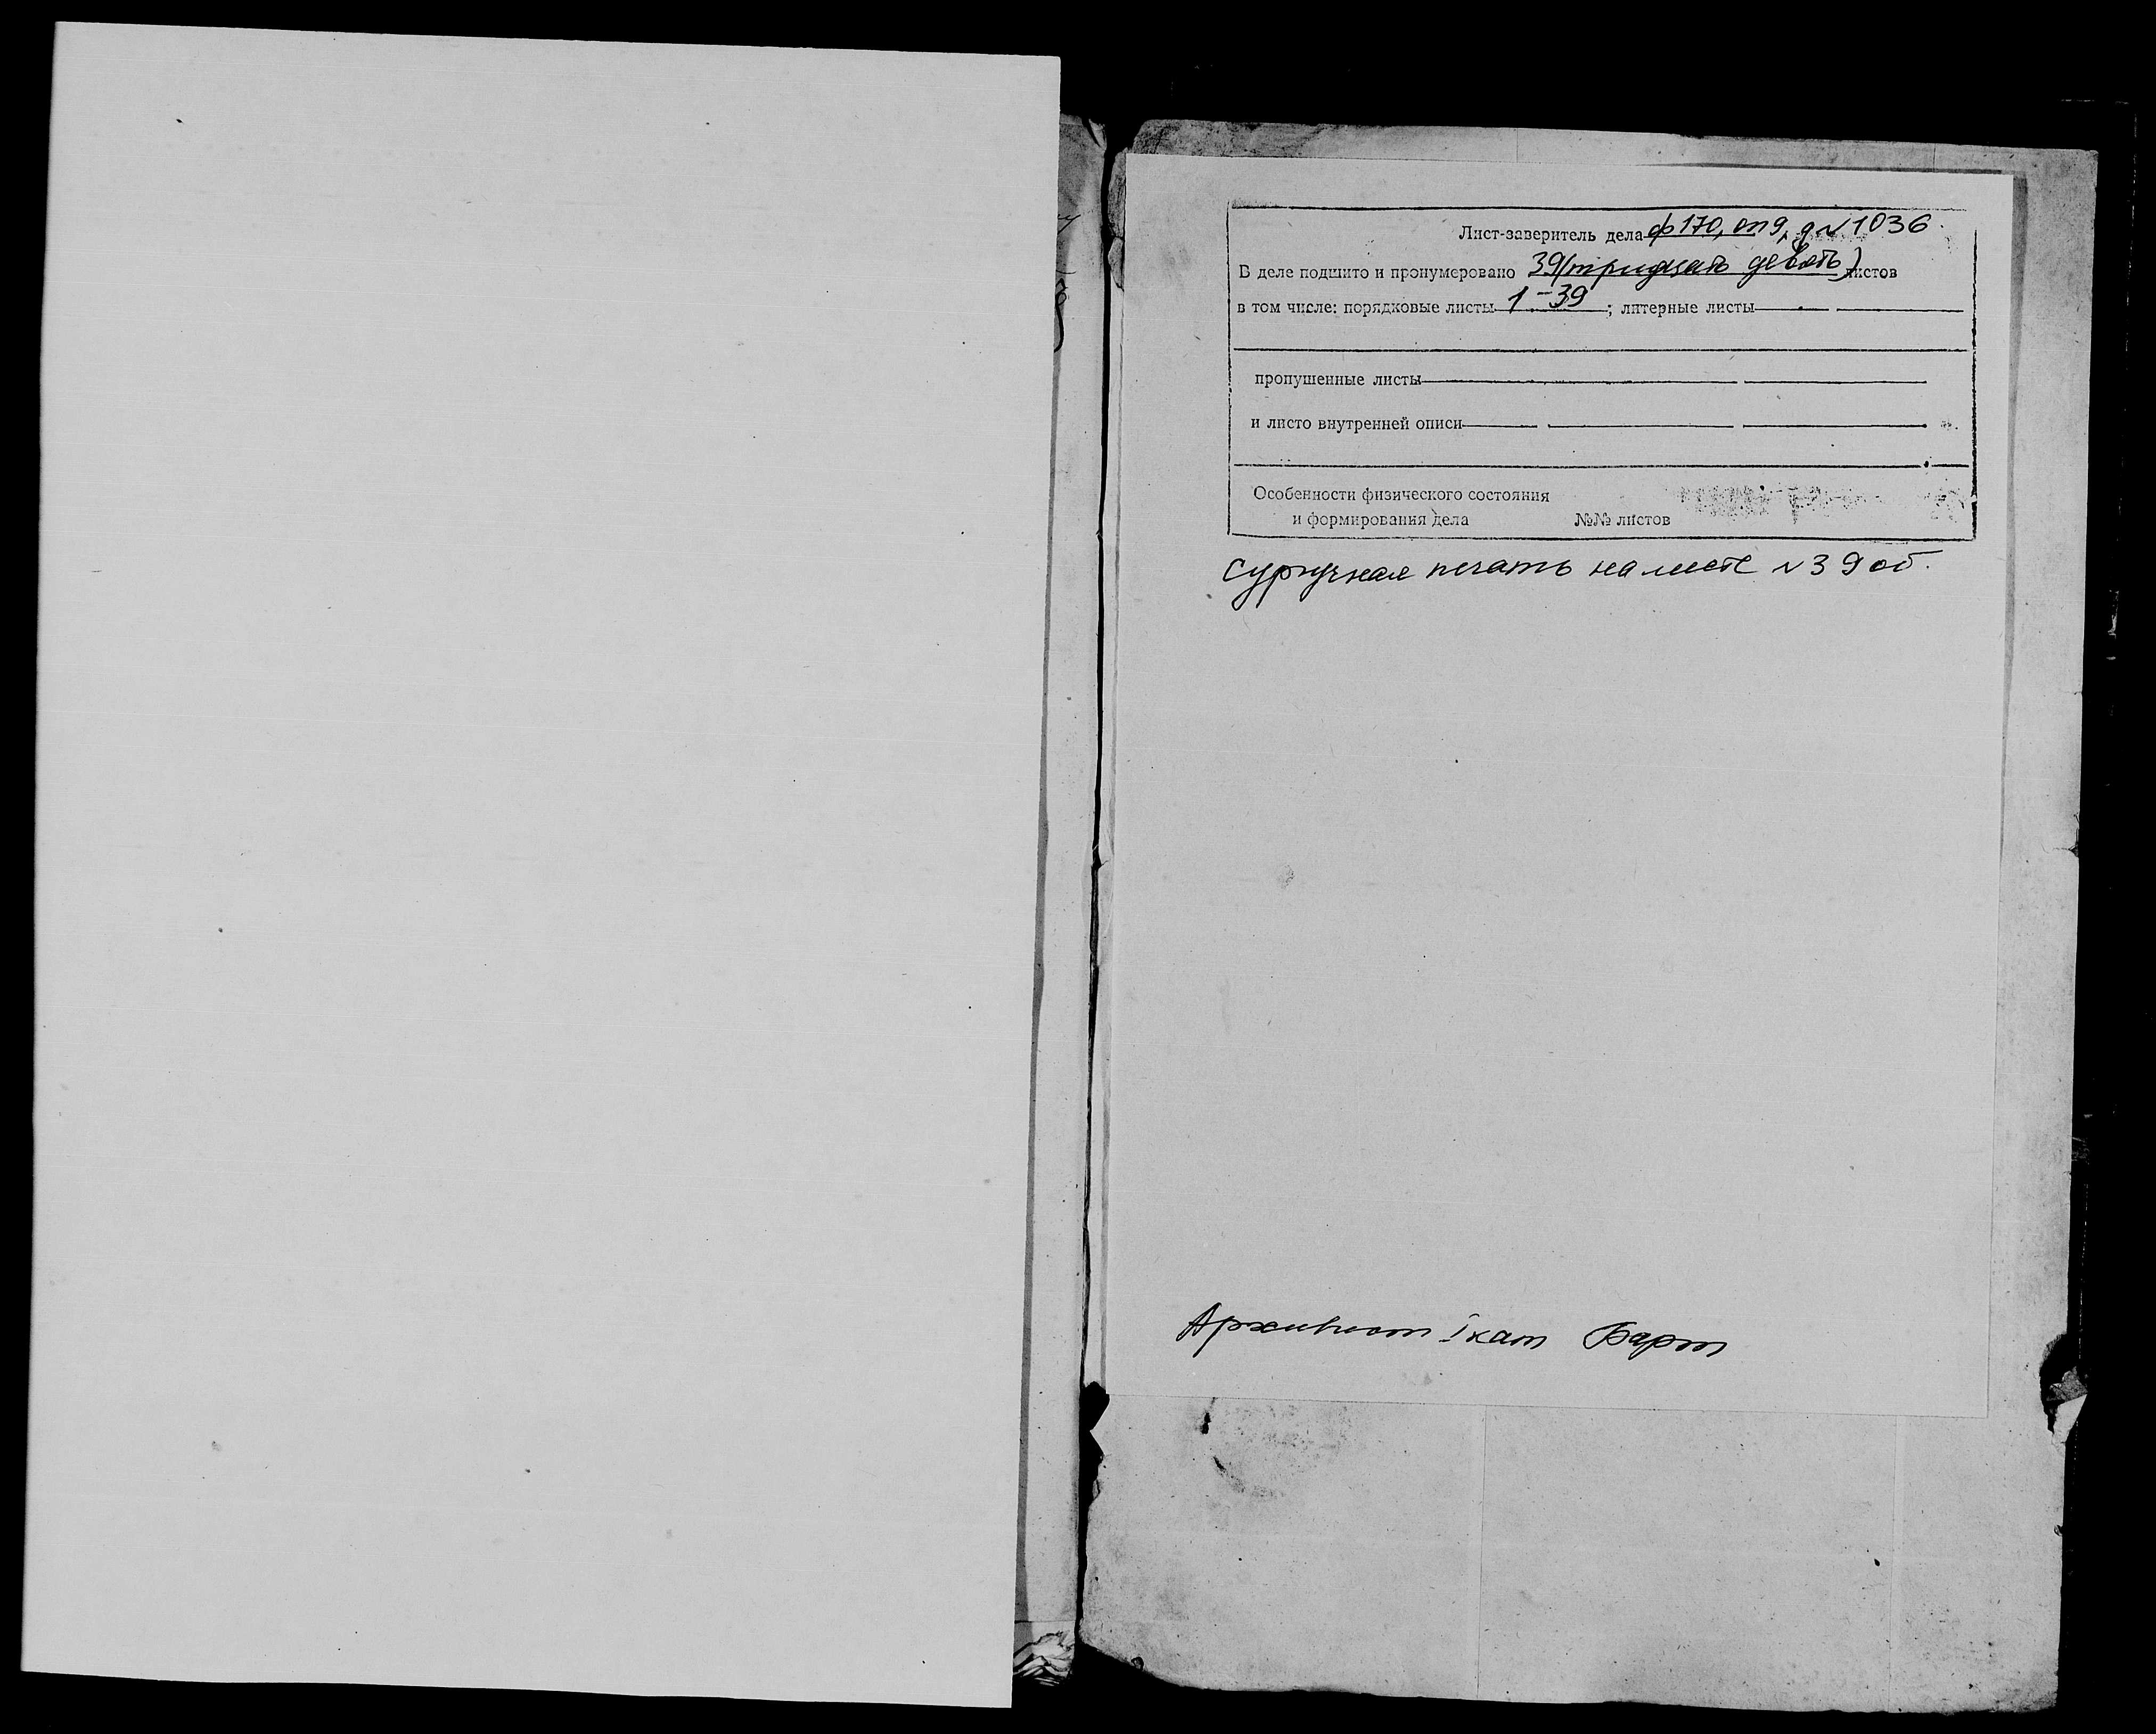 Лист-заверитель дела ф170, оп9, д№1036.
В деле подшито и пронумеровано 39(тридцать девять) листов
в том числе: порядковые листы 1-39; литерные листы
пропушенные листы
и листо внутренней описи
Особенности физического состояния
и формирования дела №№ листов
Сургучная печать на листе №39об.
Архивист I кат Барт